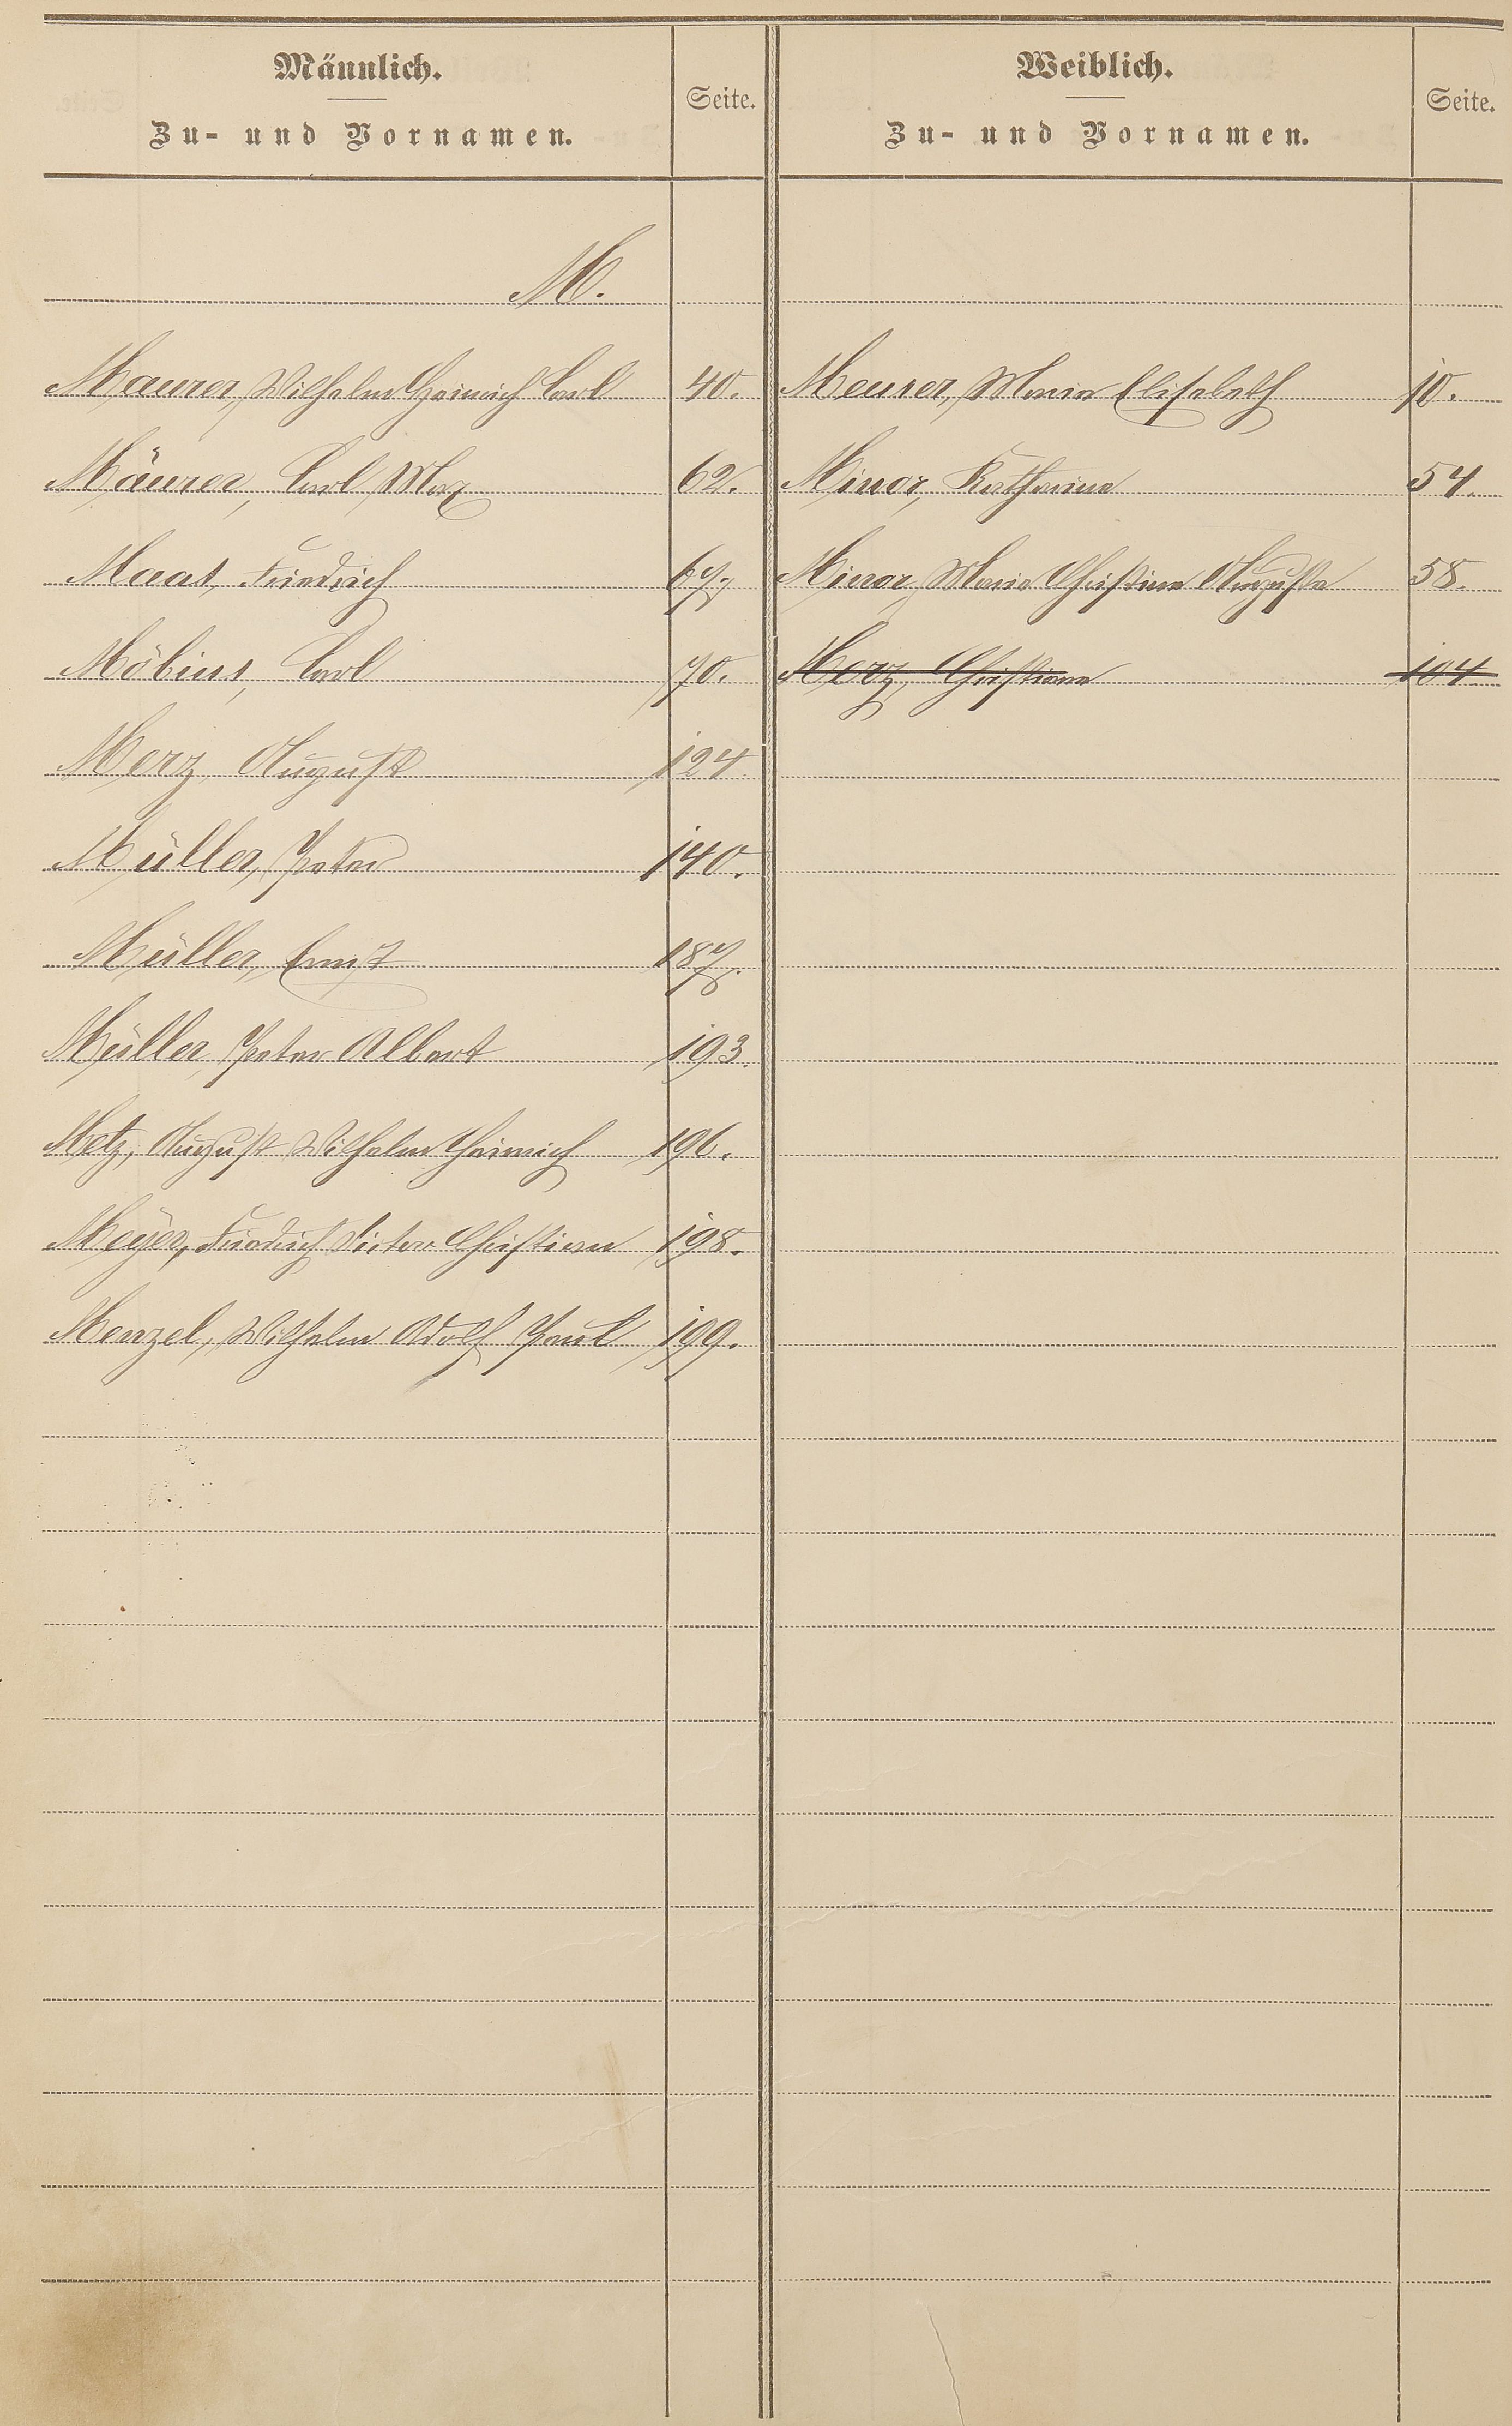 Männlich.
Zu- und Vornamen.
Seite.
Weiblich.
Zu- und Vornamen.
Seite.
M.
Maurer, Wilhelm Heinrich Carl 40. Meurer, Maria Elisabeth 10.
Mäurer, Carl Max 62. Minor, Katharina 54.
Maas, Friedrich 67. Minor, Maria Christine Auguste 58.
Möbius, Carl 70. Merz, Christiane 104
Merz, August 124.
Müller, Peter 140.
Müller, Ernst 187.
Müller, Peter Albert 193.
Metz, August Wilhelm Heinrich 196.
Meyer, Friedrich Victor Christian 198.
Menzel, Wilhelm Adolf Paul 199.